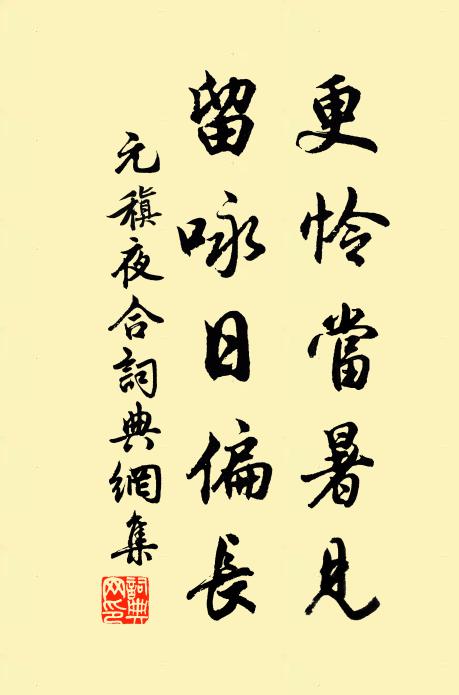 更怜當暑見
留咏日偏長
元稹夜合詞典網集
詞典网印